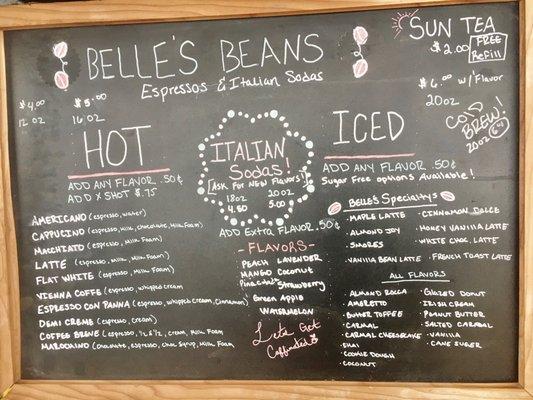 BELLE'S BEANS
Espressos & Italian Sodas
SUN TEA
$2.00 FREE
Refill
$6.00 w/Flavor
20oz
COLD
BREW!
20oz
$4.00
12 oz
$5.00
16 oz
HOT
ADD ANY FLAVOR .50¢
ADD X SHOT $.75
AMERICANO (espresso, water)
CAPPUCINO (espresso, milk, chocolate, Milk Foam)
MACCHIATO (espresso, Milk Foam)
LATTE (espresso, Milk, Milk Foam)
FLAT WHITE (espresso, Milk Foam)
VIENNA COFFE (espresso, whipped cream
ESPRESSO CON PANNA (espresso, whipped Cream, Cinnamon)
DEMI CREME (espresso, cream)
COFFEE BREVE (espresso, ½ & ½, cream, Milk Foam
MAROCHINO (chocolate, espresso, choc syrup, Milk Foam
ITALIAN
Sodas!
[Ask For NEW Flavors!]
18oz 20oz
4.50 5.00
ADD Extra Flavor .50¢
-FLAVORS-
PEACH LAVENDER
MANGO Coconut
Strawberry
Green Apple
WATERMELON
Let's Get
Caffinated
ICED
ADD ANY FLAVOR .50¢
Sugar Free options Available!
BELLE'S Specialtys
• MAPLE LATTE • CINNAMON DOLCE
• ALMOND JOY • HONEY VANILLA LATTE
• SMORES • WHITE CHOC. LATTE
• VANILLA BEAN LATTE • FRENCH TOAST LATTE
ALL FLAVORS
• ALMOND ROCCA • GLAZED DONUT
• AMARETTO • IRISH CREAM
• BUTTER TOFFEE • PEANUT BUTTER
• CARMAL • SALTED CARAMAL
• CARMAL CHEESECAKE • VANILLA
• CHAI • CANE SUGER
• COOKIE DOUGH
• COCONUT